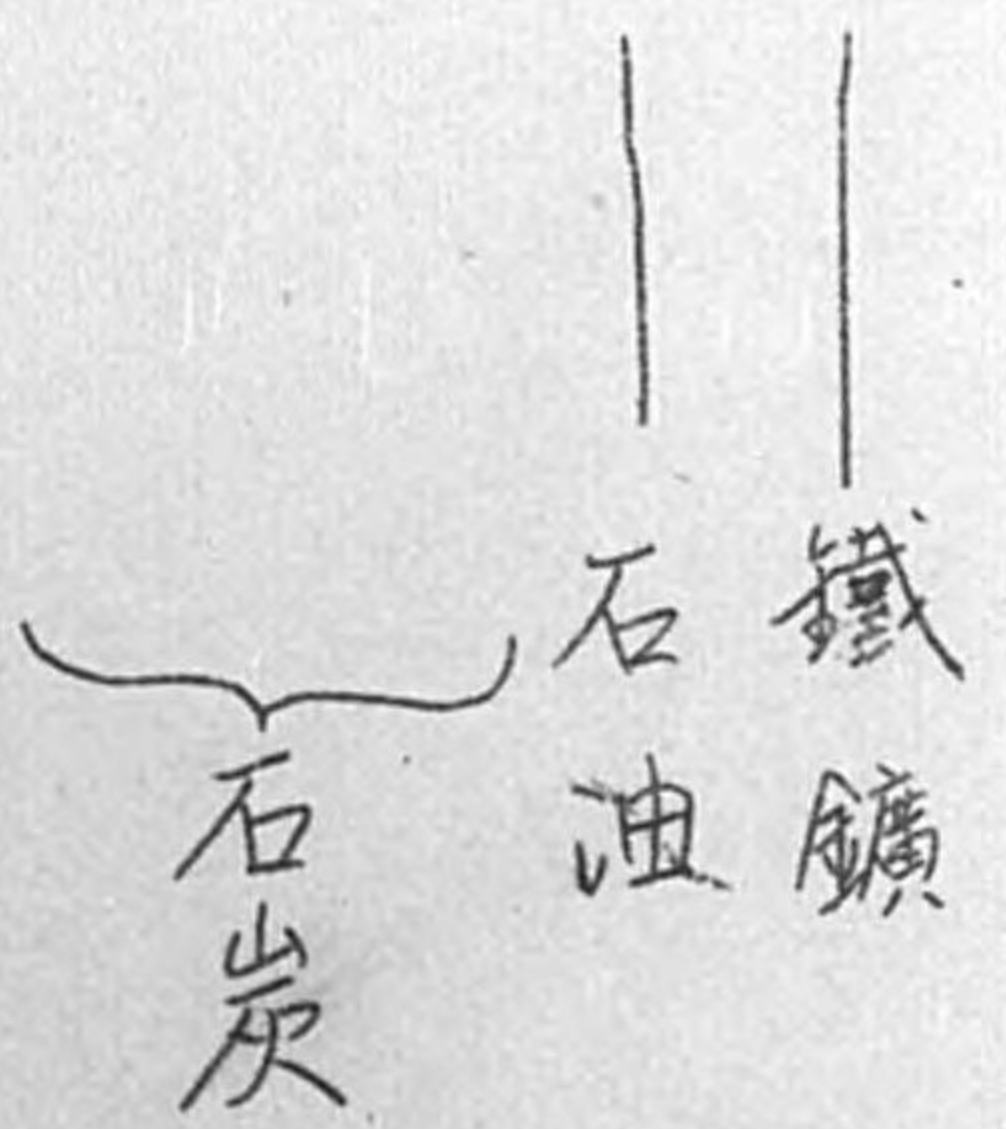 鐵鑛
石油
石炭